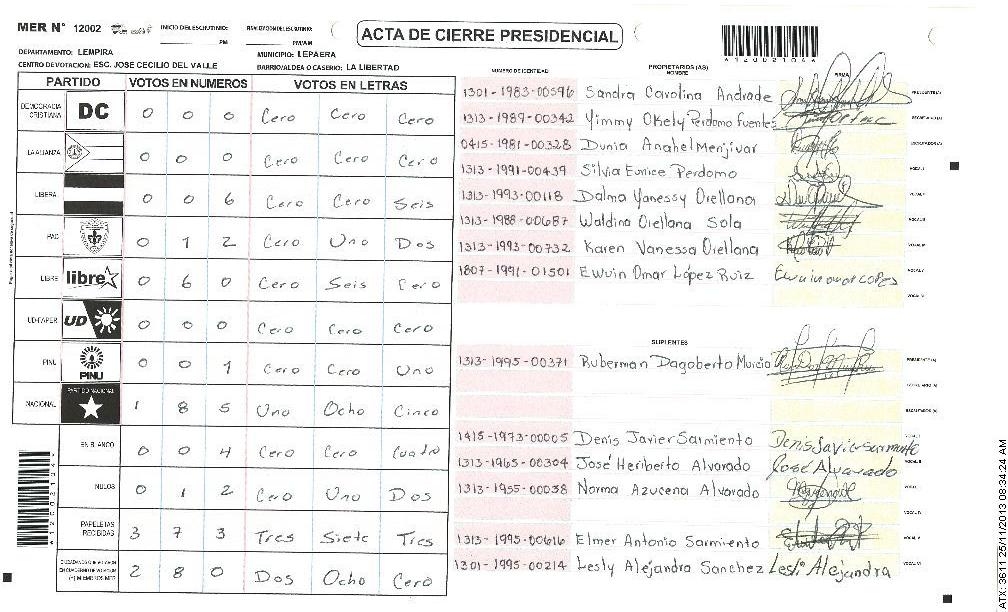 MER N° 12002 INICIO DEL ESCRUTINIO: FINALIZACION DEL ESCRUTINIO: ACTA DE CIERRE PRESIDENCIAL
PM PM/AM
DEPARTAMENTO: LEMPIRA MUNICIPIO: LEPAERA
CENTRO DE VOTACION: ESC. JOSE CECILIO DEL VALLE BARRIO/ALDEA O CASERIO: LA LIBERTAD
PARTIDO VOTOS EN NUMEROS VOTOS EN LETRAS
DEMOCRACIA CRISTIANA DC 0 0 0 Cero Cero Cero
LA ALIANZA 0 0 0 Cero Cero Cero
LIBERAL 0 0 6 Cero Cero Seis
PAC 0 1 2 Cero Uno Dos
LIBRE libre 0 6 0 Cero Seis Cero
UD-FAPER UD 0 0 0 Cero Cero Cero
PINU PINU 0 0 1 Cero Cero Uno
NACIONAL PARTIDO NACIONAL 1 8 5 Uno Ocho Cinco
EN BLANCO 0 0 4 Cero Cero Cuatro
NULOS 0 1 2 Cero Uno Dos
PAPELETAS RECIBIDAS 3 7 3 Tres Siete Tres
(+) MIEMBROS MER 2 8 0 Dos Ocho Cero
NUMERO DE IDENTIDAD PROPIETARIOS (AS) NOMBRE FIRMA
1301-1983-00596 Sandra Carolina Andrade PRESIDENTE (A)
1313-1989-00342 Yimmy Okely Perdomo Fuentes SECRETARIO (A)
0415-1981-00328 Dunia Anahel Menjivar ESCRUTADOR (A)
1313-1991-00439 Silvia Eunice Perdomo VOCAL I
1313-1993-00118 Dalma Yanessy Orellana VOCAL II
1313-1988-00687 Waldina Orellana Sola VOCAL III
1313-1993-00732 Karen Vanessa Orellana VOCAL IV
1807-1991-01501 Ewuin Omar López Ruiz Ewuin omar LOPES VOCAL V
VOCAL VI
SUPLENTES
1313-1995-00371 Ruberman Dagoberto Murcia PRESIDENTE (A)
SECRETARIO (A)
ESCRUTADOR (A)
1415-1973-00005 Denis Javier Sarmiento Denis Javier Sarmiento VOCAL I
1313-1965-00304 José Heriberto Alvarado José Alvarado VOCAL II
1313-1955-00038 Norma Azucena Alvarado VOCAL III
VOCAL IV
1313-1995-00616 Elmer Antonio Sarmiento VOCAL V
1301-1995-00214 Lesly Alejandra Sanchez Lesli Alejandra VOCAL VI
ATX: 3611 25/11/2013 08:34:24 AM